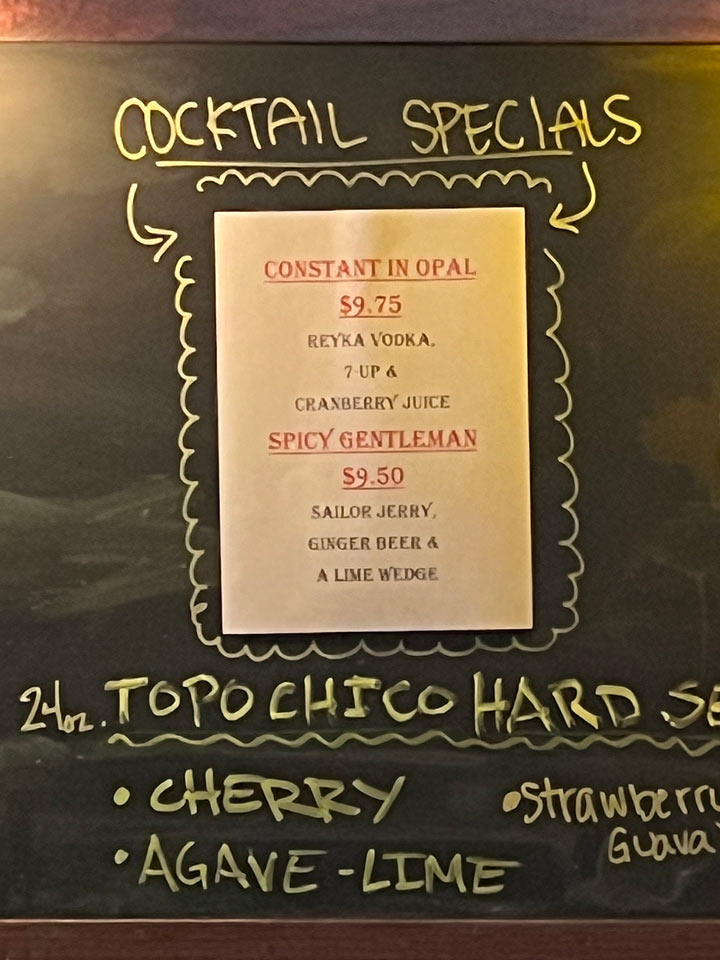 COCKTAIL SPECIALS
CONSTANT IN OPAL
$9.75
REYKA VODKA,
7-UP &
CRANBERRY JUICE
SPICY GENTLEMAN
$9.50
SAILOR JERRY,
GINGER BEER &
A LIME WEDGE
24oz. TOPO CHICO HARD SE
• CHERRY
• Strawberry
Guava
• AGAVE-LIME